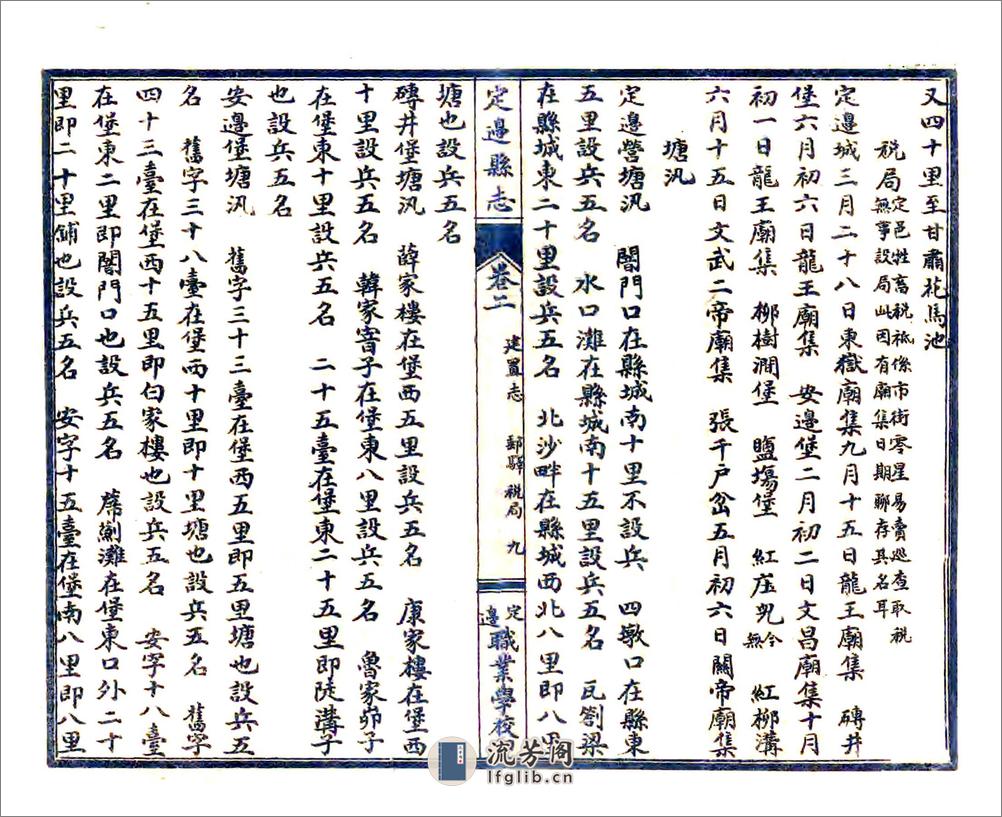 又四十里至甘肅花馬池
稅局定邑牲畜稅祗係市街零星易賣巡查取稅
無事設局此因有廟集日期聊存其名耳
定邊城三月二十八日東嶽廟集九月十五日龍王廟集 磚井
堡六月初六日龍王廟集 安邊堡二月初二日文昌廟集十月
初一日龍王廟集 柳樹澗堡 鹽塲堡 紅庄兕今無 紅柳溝
六月十五日文武二帝廟集 張千戶岔五月初六日關帝廟集
塘汛
定邊營塘汛 闇門口在縣城南十里不設兵 四墩口在縣東
五里設兵五名 水口灘在縣城南十五里設兵五名 瓦劄梁
在縣城東二十里設兵五名 北沙畔在縣城西北八里即八里
定邊縣志 卷二 建置志 郵驛 稅局 九 定邊職業學校
塘也設兵五名
磚井堡塘汛 薛家樓在堡西五里設兵五名 康家樓在堡西
十里設兵五名 韓家窨子在堡東八里設兵五名 魯家峁子
在堡東十里設兵五名 二十五臺在堡東二十五里即陡溝子
也設兵五名
安邊堡塘汛 舊字三十三臺在堡西五里即五里塘也設兵五
名 舊字三十八臺在堡西十里即十里塘也設兵五名 舊字
四十三臺在堡西十五里即白家樓也設兵五名 安字十八臺
在堡東二里即闇門口也設兵五名 蓆薊灘在堡東口外二十
里即二十里舖也設兵五名 安字十五臺在堡南八里即八里
流芳阁
lfglib.cn